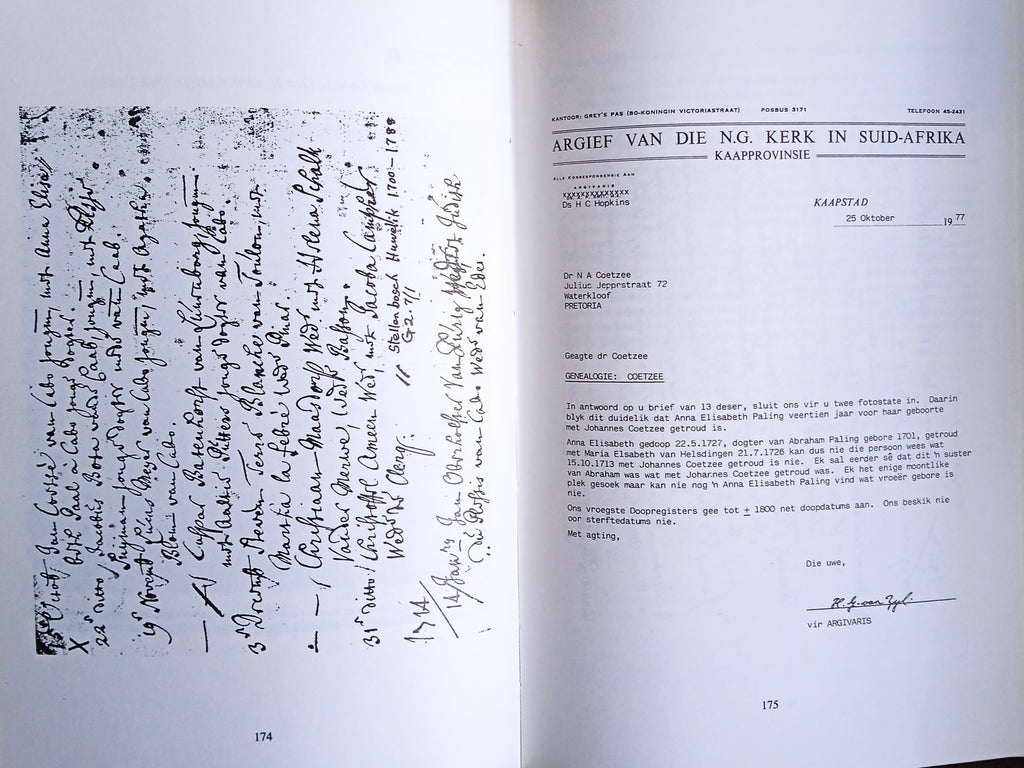 Jan Coetsé van Cabo jongman, mett Anna Elisa
beth Paal à Cabo jonge dogter.
22 ditto / Jacobus van de Caab jongman, mett
jonge dogter mede van de Caab.
19 Novemb Pieter van Cabo jongman, mett Agatha
Blom van Cabo.
Caspar van jongman
mett jonge dogter van Cabo.
3 Decemb Steven Terré Blanche van Toulon, mett
Martha la Febre Wed: Pinar.
Christiaan Maasdorff Wed: mett Helena Schalk
Vander Merwe, Wed: Basson.
31 ditto / Christoffel Ameen Wed: mett Jacoba Campher
Wed: de Clercq.
// Stellenbosch Huwelik 1700-1788
G2. 7/1
1714
14 Jan Jan
van Cabo Wed: van
174
KANTOOR: GREY'S PAS (BO-KONINGIN VICTORIASTRAAT) POSBUS 3171 TELEFOON 45-2431
ARGIEF VAN DIE N.G. KERK IN SUID-AFRIKA
KAAPPROVINSIE
ALLE KORRESPONDENSIE AAN
ARGIVARIS
XXXXXXXXXXXXXX
Ds H C Hopkins
KAAPSTAD
25 Oktober 1977
Dr N A Coetzee
Juliuc Jepprstraat 72
Waterkloof
PRETORIA
Geagte dr Coetzee
GENEALOGIE: COETZEE
In antwoord op u brief van 13 deser, sluit ons vir u twee fotostate in. Daarin
blyk dit duidelik dat Anna Elisabeth Paling veertien jaar voor haar geboorte
met Johannes Coetzee getroud is.
Anna Elisabeth gedoop 22.5.1727, dogter van Abraham Paling gebore 1701, getroud
met Maria Elsabeth van Helsdingen 21.7.1726 kan dus nie die persoon wees wat
15.10.1713 met Johannes Coetzee getroud is nie. Ek sal eerder sê dat dit 'n suster
van Abraham was wat met Johannes Coetzee getroud was. Ek het enige moontlike
plek gesoek maar kan nie nog 'n Anna Elisabeth Paling vind wat vroeër gebore is
nie.
Ons vroegste Doopregisters gee tot ± 1800 net doopdatums aan. Ons beskik nie
oor sterftedatums nie.
Met agting,
Die uwe,
vir ARGIVARIS
175